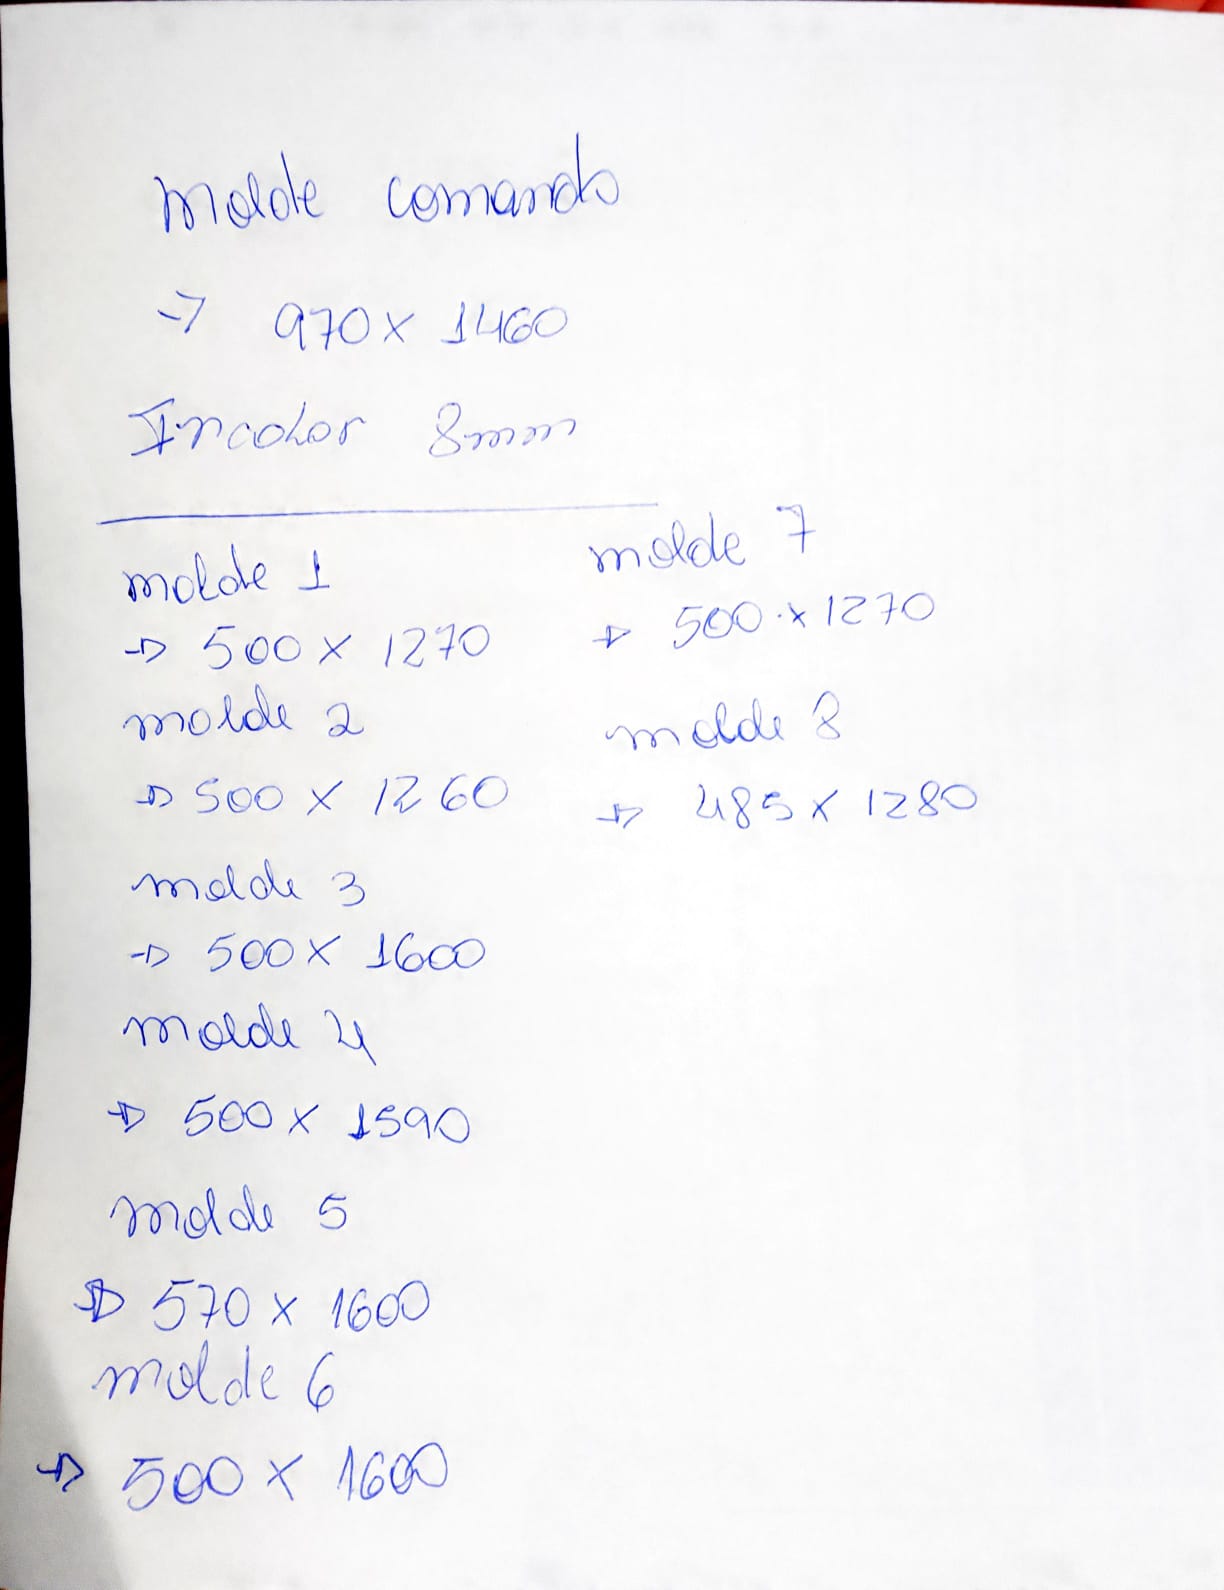 Molde comando
-> 970 x 1460
Incolor 8mm
molde 1
-> 500 x 1270
molde 2
-> 500 x 1260
molde 3
-> 500 x 1600
molde 4
-> 500 x 1590
molde 5
-> 570 x 1600
molde 6
-> 500 x 1600
molde 7
-> 500 x 1270
molde 8
-> 485 x 1280